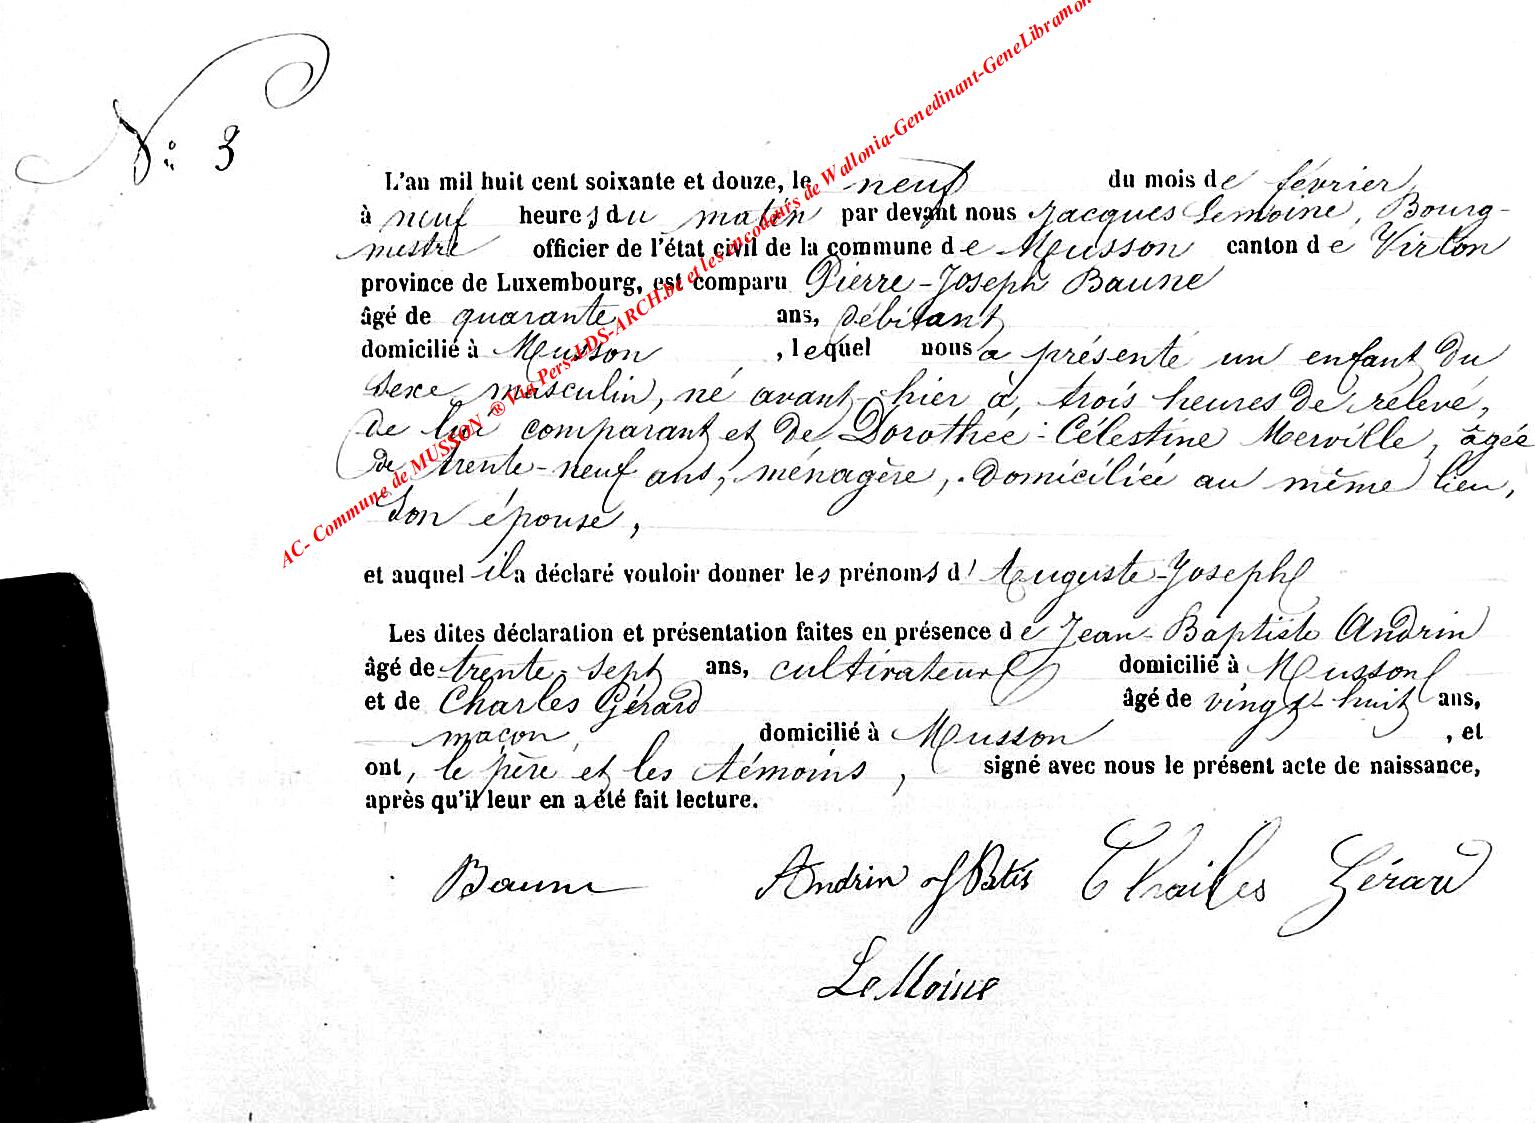 N° 3
AC- Commune de MUSSON ® Via Pers-LDS-ARCH.be et les encodeurs de Wallonia-Genedinant-GeneLibramon
L'an mil huit cent soixante et douze, le neuf du mois de février
à neuf heures du matin par devant nous Jacques Lemoine, Bourg-
mestre officier de l'état civil de la commune de Musson canton de Virton
province de Luxembourg, est comparu Pierre-Joseph Baune
âgé de quarante ans, débitant
domicilié à Musson, lequel nous a présenté un enfant du
sexe masculin, né avant-hier à trois heures de relevé,
de lui comparant et de Dorothée-Célestine Merville, âgée
de trente-neuf ans, ménagère, domiciliée au même lieu,
son épouse,
et auquel il a déclaré vouloir donner les prénoms d'Auguste-Joseph
Les dites déclaration et présentation faites en présence de Jean-Baptiste Andrin
âgé de trente-sept ans, cultivateur domicilié à Musson
et de Charles Gérard âgé de vingt-huit ans,
maçon, domicilié à Musson, et
ont, le père et les témoins, signé avec nous le présent acte de naissance,
après qu'il leur en a été fait lecture.
Baune Andrin J Btis Charles Gérard
LeMoine